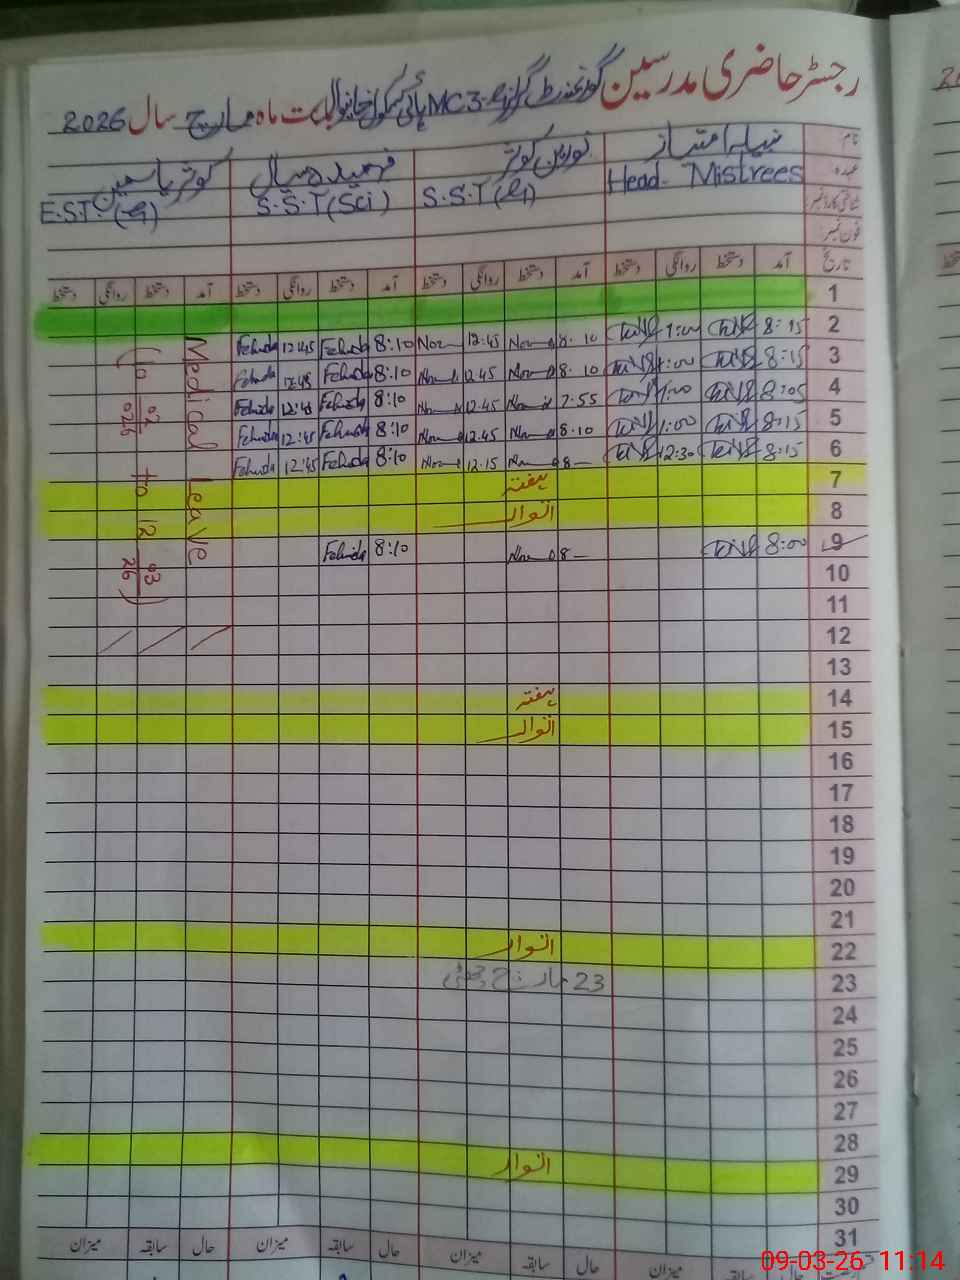 رجسٹر حاضری مدرسین گورنمنٹ گرلز MC3 ہائی سکول خانیوال بابت ماہ مارچ سال 2026
نام نبیلہ امتیاز نورین کوثر فہمیدہ سیال کوثر یاسمین
عہدہ Head-Mistrees S.S.T S.S.T (Sci) E.S.T
شناختی کارڈ نمبر
فون نمبر
تاریخ آمد دستخط روانگی دستخط آمد دستخط روانگی دستخط آمد دستخط روانگی دستخط آمد دستخط روانگی دستخط
1
2 8:15 1:00 8:10 12:45 8:10 Fehmida 12:45 Fehmida
3 8:15 1:00 8:10 12:45 8:10 Fehmida 12:45 Fehmida
4 8:05 1:00 7:55 12:45 8:10 Fehmida 12:45 Fehmida
5 8:15 1:00 8:10 12:45 8:10 Fehmida 12:45 Fehmida
6 8:15 12:30 8- 12:15 8:10 Fehmida 12:45 Fehmida
Medical Leave
to 12 03 26)
7 ہفتہ
8 اتوار
9 8:00 8- 8:10 Fehmida
10
11
12
13
14 ہفتہ
15 اتوار
16
17
18
19
20
21
22 اتوار
23 23 مارچ چھٹی
24
25
26
27
28
29 اتوار
30
31
حال سابقہ میزان حال سابقہ میزان حال سابقہ میزان حال سابقہ میزان
09-03-26 11:14